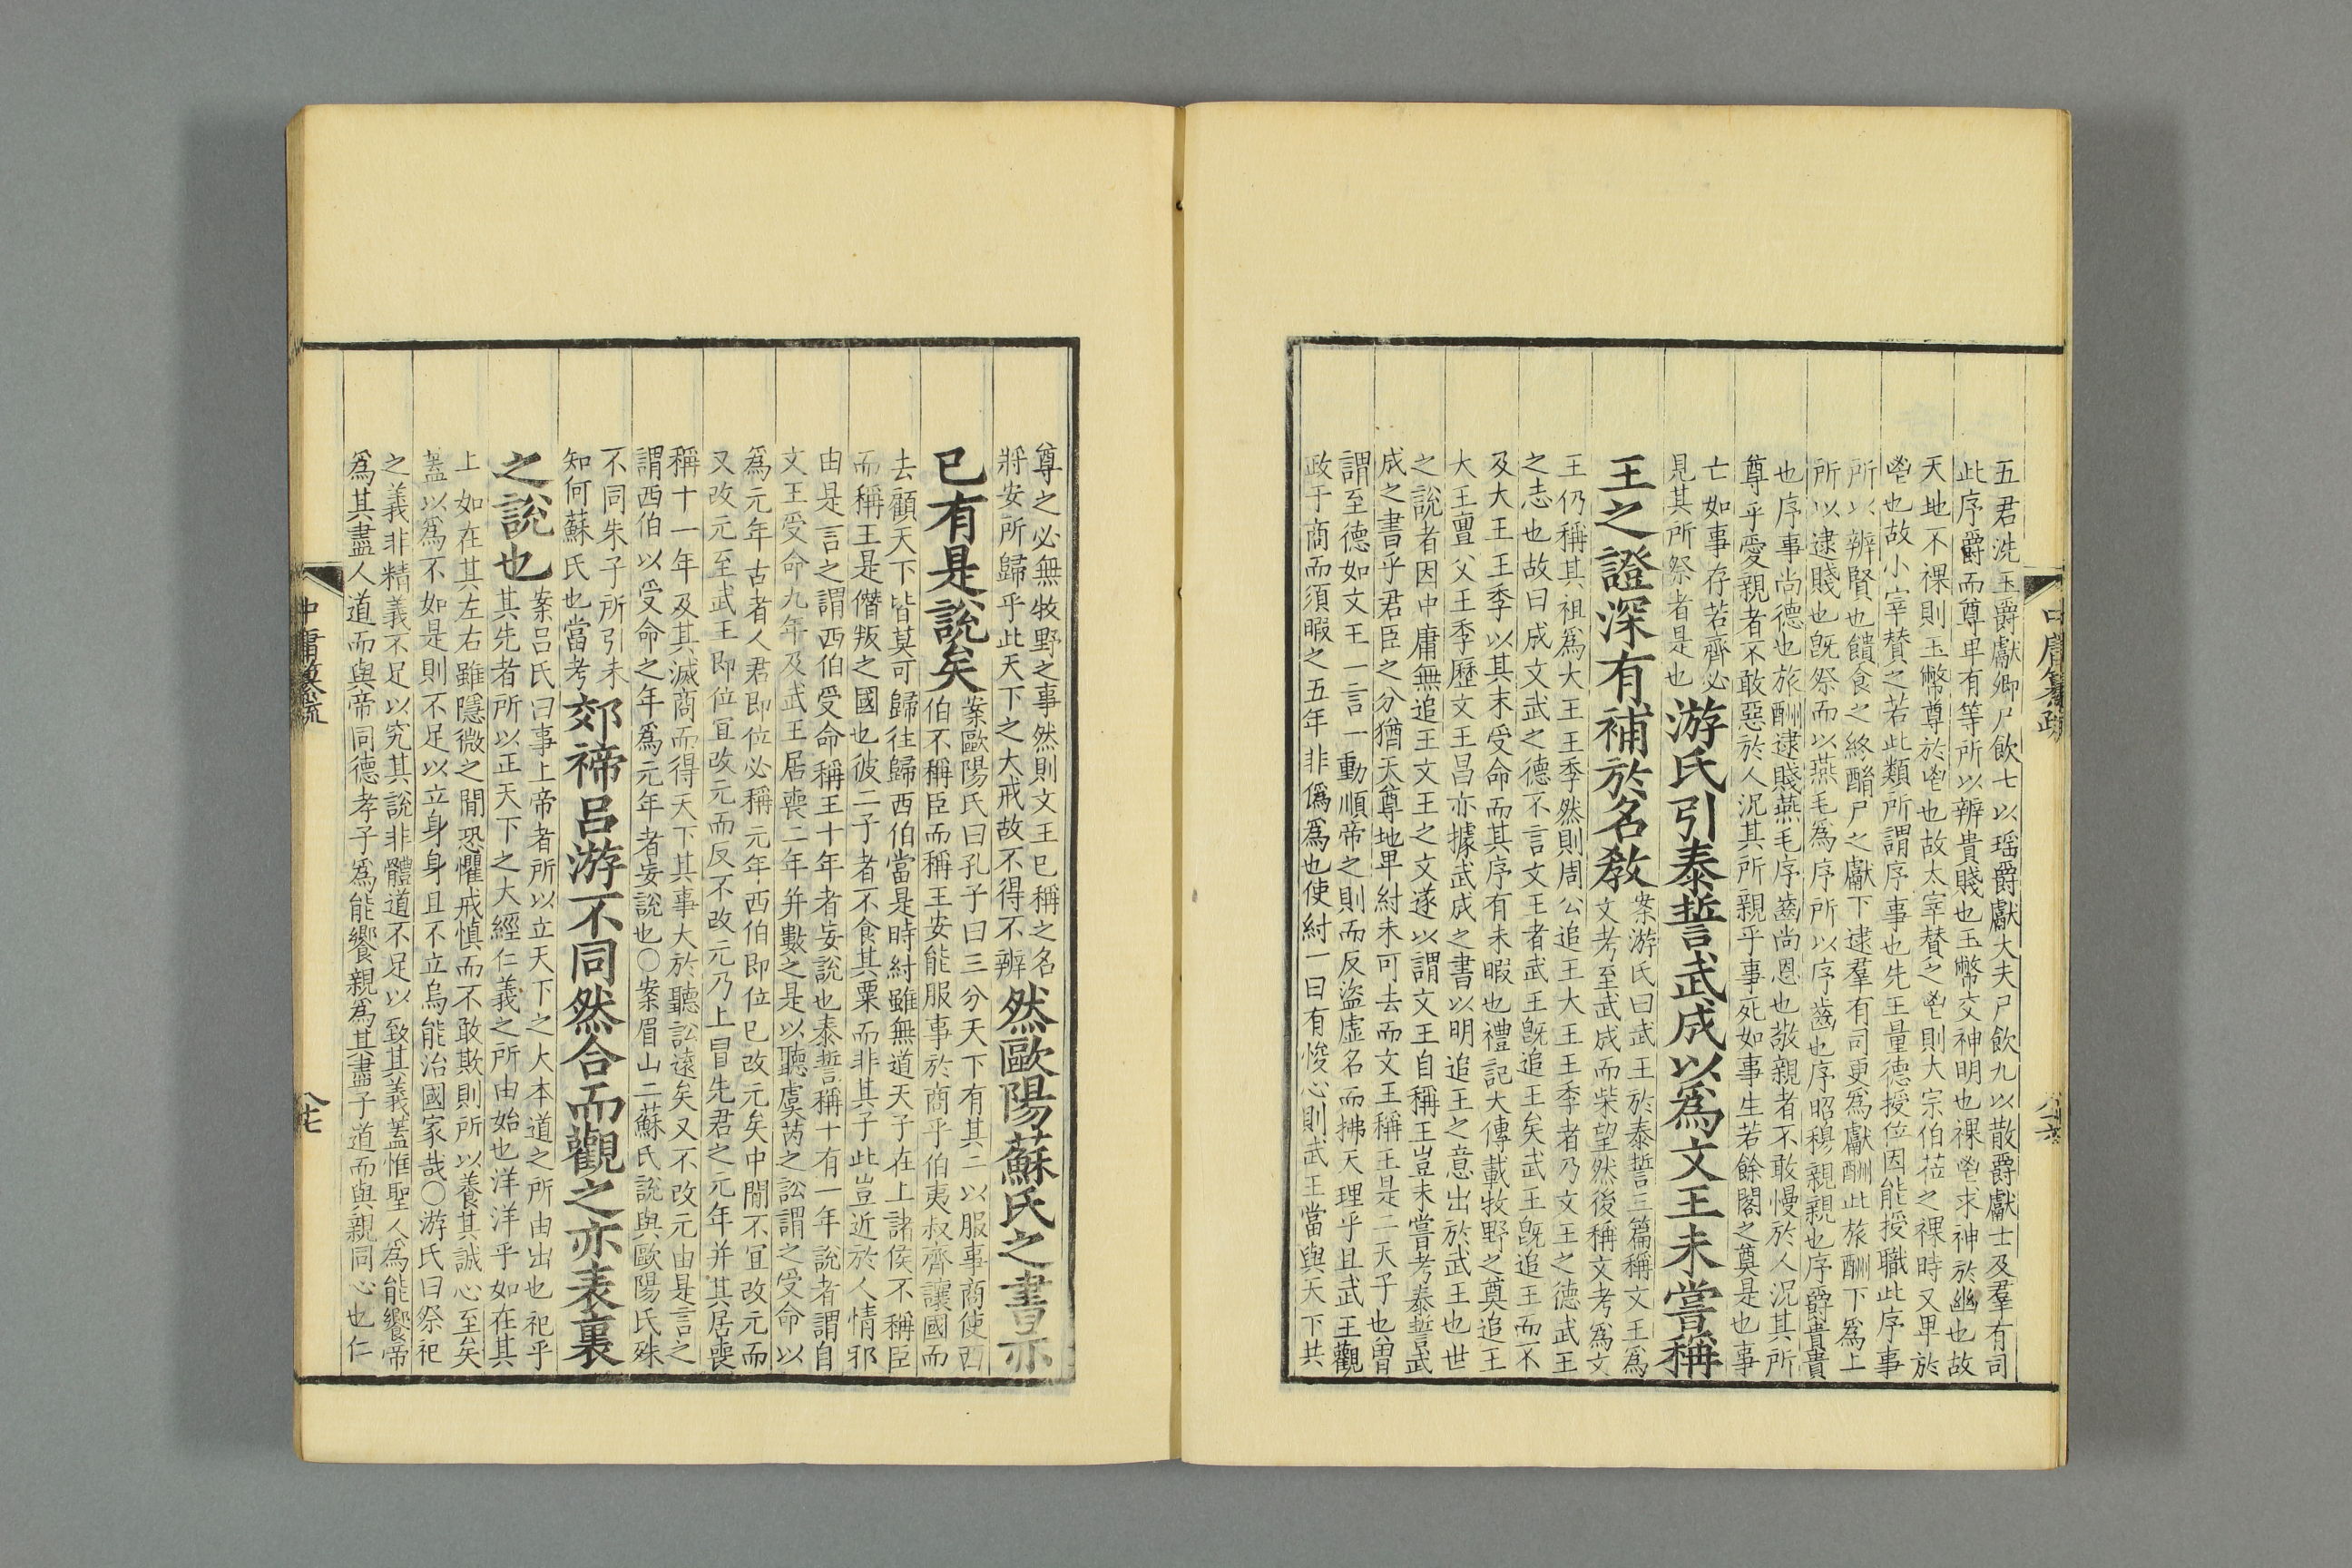 五君洗玉爵獻卿尸飲七以瑶爵獻大夫尸飲九以散爵獻士及羣有司
此序爵而尊卑有等所以辨貴賤也玉幣交神明也祼鬯求神於幽也故
天地不祼則玉幣尊於鬯也故太宰賛之鬯則大宗伯莅之祼時又卑於
鬯也故小宰賛之若此類所謂序事也先王量德授位因能授職此序事
所以辨賢也饋食之終酳尸之獻下逮羣有司更為獻酬此旅酬下為上
所以逮賤也旣祭而以燕毛為序所以序齒也序昭穆親親也序爵貴貴
也序事尚德也旅酬逮賤燕毛序齒尚恩也敬親者不敢慢於人況其所
尊乎愛親者不敢惡於人況其所親乎事死如事生若餘閣之奠是也事
亡如事存若齊必
見其所祭者是也
游氏引泰誓武成以為文王未嘗稱
王之證深有補於名敎
案游氏曰武王於泰誓三篇稱文王為
文考至武成而柴望然後稱文考為文
王仍稱其祖為大王王季然則周公追王大王王季者乃文王之德武王
之志也故曰成文武之德不言文王者武王旣追王矣武王旣追王而不
及大王王季以其末受命而其序有未暇也禮記大傳載牧野之奠追王
大王亶父王季歷文王昌亦據武成之書以明追王之意出於武王也世
之說者因中庸無追王文王之文遂以謂文王自稱王豈未嘗考泰誓武
成之書乎君臣之分猶天尊地卑紂未可去而文王稱王是二天子也曽
謂至德如文王一言一動順帝之則而反盜虛名而拂天理乎且武王觀
政于商而須暇之五年非僞為也使紂一日有悛心則武王當與天下共
中庸纂疏
尊之必無牧野之事然則文王已稱之名
將安所歸乎此天下之大戒故不得不辨
然歐陽蘇氏之書亦
已有是說矣
案歐陽氏曰孔子曰三分天下有其二以服事商使西
伯不稱臣而稱王安能服事於商乎伯夷叔齊讓國而
去顧天下皆莫可歸往歸西伯當是時紂雖無道天子在上諸侯不稱臣
而稱王是僭叛之國也彼二子者不食其粟而非其子此豈近於人情邪
由是言之謂西伯受命稱王十年者妄說也泰誓稱十有一年說者謂自
文王受命九年及武王居喪二年并數之是以聽虞芮之訟謂之受命以
為元年古者人君即位必稱元年西伯即位已改元矣中閒不宜改元而
又改元至武王即位宜改元而反不改元乃上冒先君之元年并其居喪
稱十一年及其滅商而得天下其事大於聽訟遠矣又不改元由是言之
謂西伯以受命之年為元年者妄說也○案眉山二蘇氏說與歐陽氏殊
不同朱子所引未
知何蘇氏也當考
郊禘呂游不同然合而觀之亦表裏
之說也
案呂氏曰事上帝者所以立天下之大本道之所由出也祀乎
其先者所以正天下之大經仁義之所由始也洋洋乎如在其
上如在其左右雖隱微之閒恐懼戒慎而不敢欺則所以養其誠心至矣
葢以為不如是則不足以立身身且不立烏能治國家哉○游氏曰祭祀
之義非精義不足以究其說非體道不足以致其義葢惟聖人為能饗帝
為其盡人道而與帝同德孝子為能饗親為其盡子道而與親同心也仁
中庸纂疏
八十七